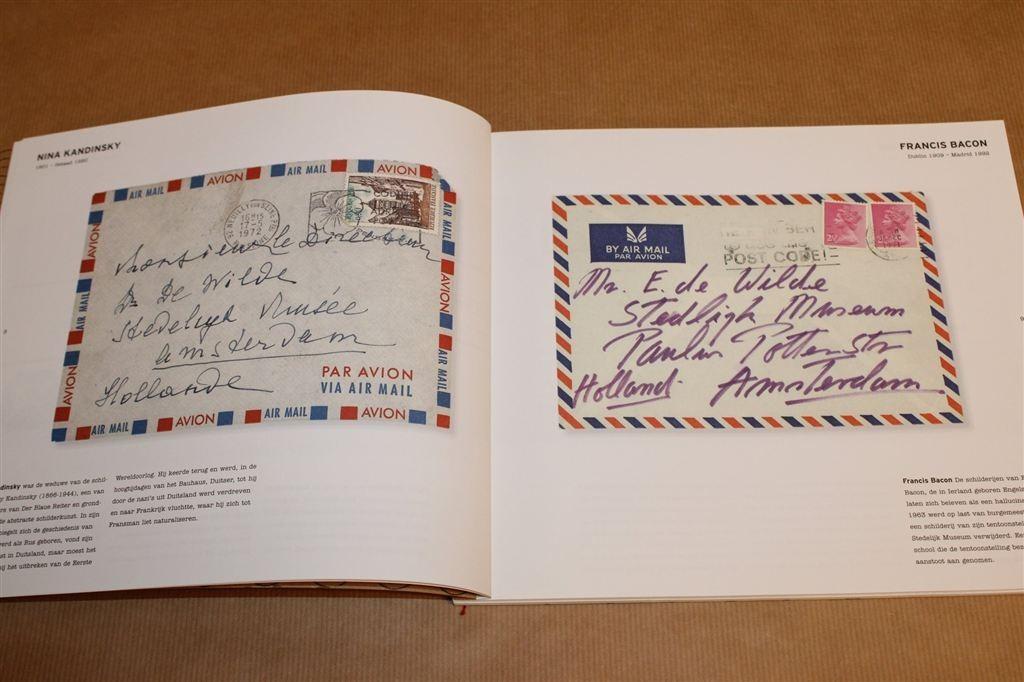 NINA KANDINSKY
AIR MAIL AVION AIR MAIL AVION
16H15
17-5
1972
Monsieur Le Directeur
De Wilde
Stedelijk Musée
Amsterdam
Hollande
PAR AVION
VIA AIR MAIL
AVION
AIR MAIL
AVION
AVION
AIR MAIL
AIR MAIL AVION AIR MAIL AVION
dinsky was de weduwe van de schil-
y Kandinsky (1866-1944), een van
rs van Der Blaue Reiter en grond-
e abstracte schilderkunst. In zijn
iegelt zich de geschiedenis van
erd als Rus geboren, vond zijn
st in Duitsland, maar moest het
ij het uitbreken van de Eerste
Wereldoorlog. Hij keerde terug en werd, in de
hoogtijdagen van het Bauhaus, Duitser, tot hij
door de nazi's uit Duitsland werd verdreven
en naar Frankrijk vluchtte, waar hij zich tot
Fransman liet naturaliseren.
FRANCIS BACON
Dublin 1909 – Madrid 1992
BY AIR MAIL
PAR AVION
POST CODE!
Mr. E. de Wilde
Stedligh Museum
Paulus Potterstr
Holland. Amsterdam
Francis Bacon De schilderijen van
Bacon, de in Ierland geboren Engels
laten zich beleven als een hallucina
1963 werd op last van burgemeest
een schilderij van zijn tentoonste
Stedelijk Museum verwijderd. Ee
school die de tentoonstelling bez
aanstoot aan genomen.